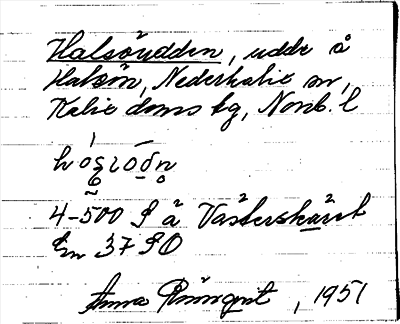 Halsöudden, udde å
Halsön, Nederkalix sn,
Kalix doms tg, Norrb. l
4-500 S å Västerskäret
Em 37 SO
Anna, 1951